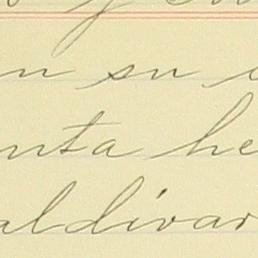 n su
nta he
aldivar